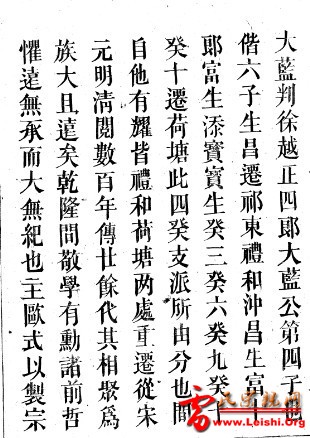 大藍判徐越正四郎大藍公第四子也
偕六子生昌遷祁東禮和沖昌生富十
郎富生添寶寶生癸三癸六癸九癸十
癸十遷荷塘此四癸支派所由分也間
自他有耀皆禮和荷塘两處重遷從宋
元明清閱數百年傳廿餘代其相聚為
族大且逺矣乾隆間敬學有勳諸前哲
懼逺無承而大無紀也主歐式以製宗
www.Leishi.Org